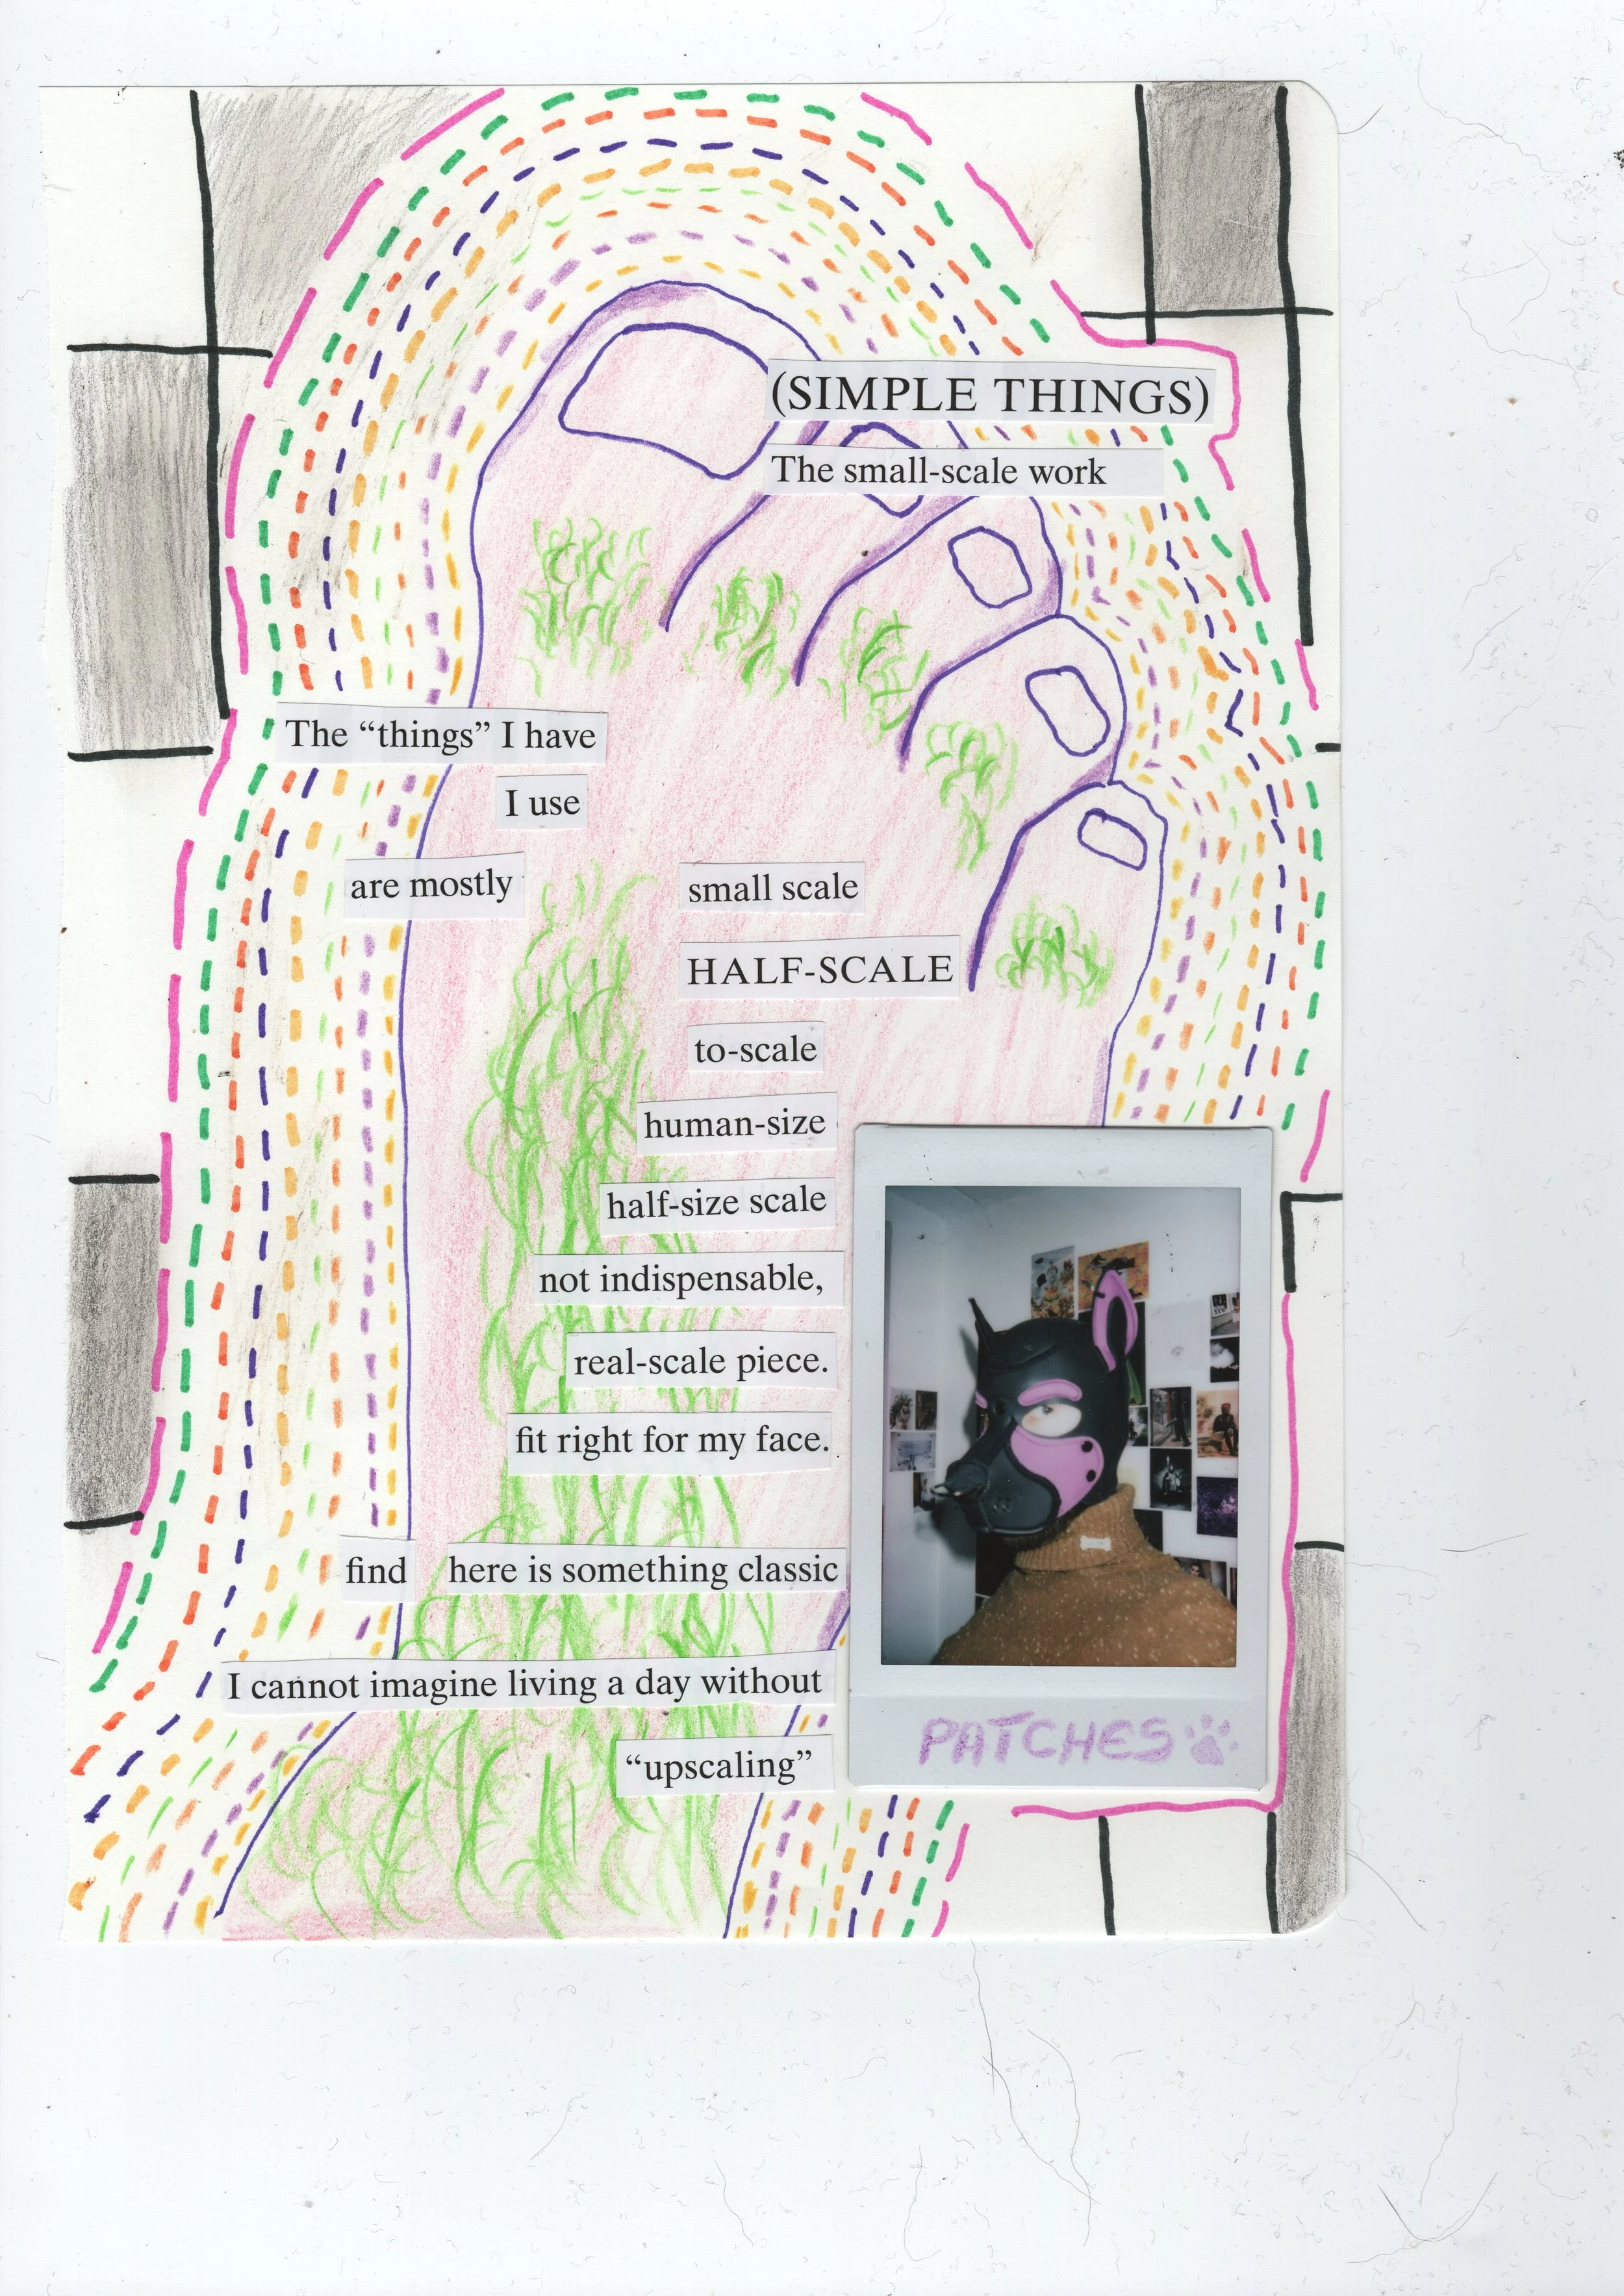 (SIMPLE THINGS)
The small-scale work
The “things” I have
I use
are mostly
small scale
HALF-SCALE
to-scale
human-size
half-size scale
not indispensable,
real-scale piece.
fit right for my face.
find here is something classic
I cannot imagine living a day without
“upscaling”
PATCHES